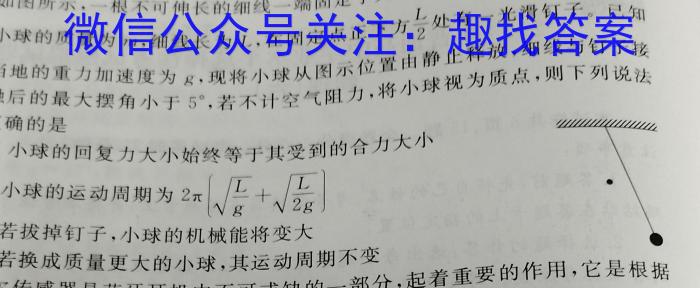 如图所示,一根不可伸长的细线一端固定于
方L/2处 光滑钉子,已知
小球的质
微信公众号关注:趣找答案
当地的重力加速度为g,现将小球从图示位置由静止释放 接
后的最大摆角小于5°,若不计空气阻力,将小球视为质点,则下列说法
确的是
小球的回复力大小始终等于其受到的合力大小
小球的运动周期为2π(√(L/g)+√(L/2g))
若拔掉钉子,小球的机械能将变大
若换成质量更大的小球,其运动周期不变
传感器是蓝牙耳机中不可或缺的一部分,起着重要的作用,它是根据